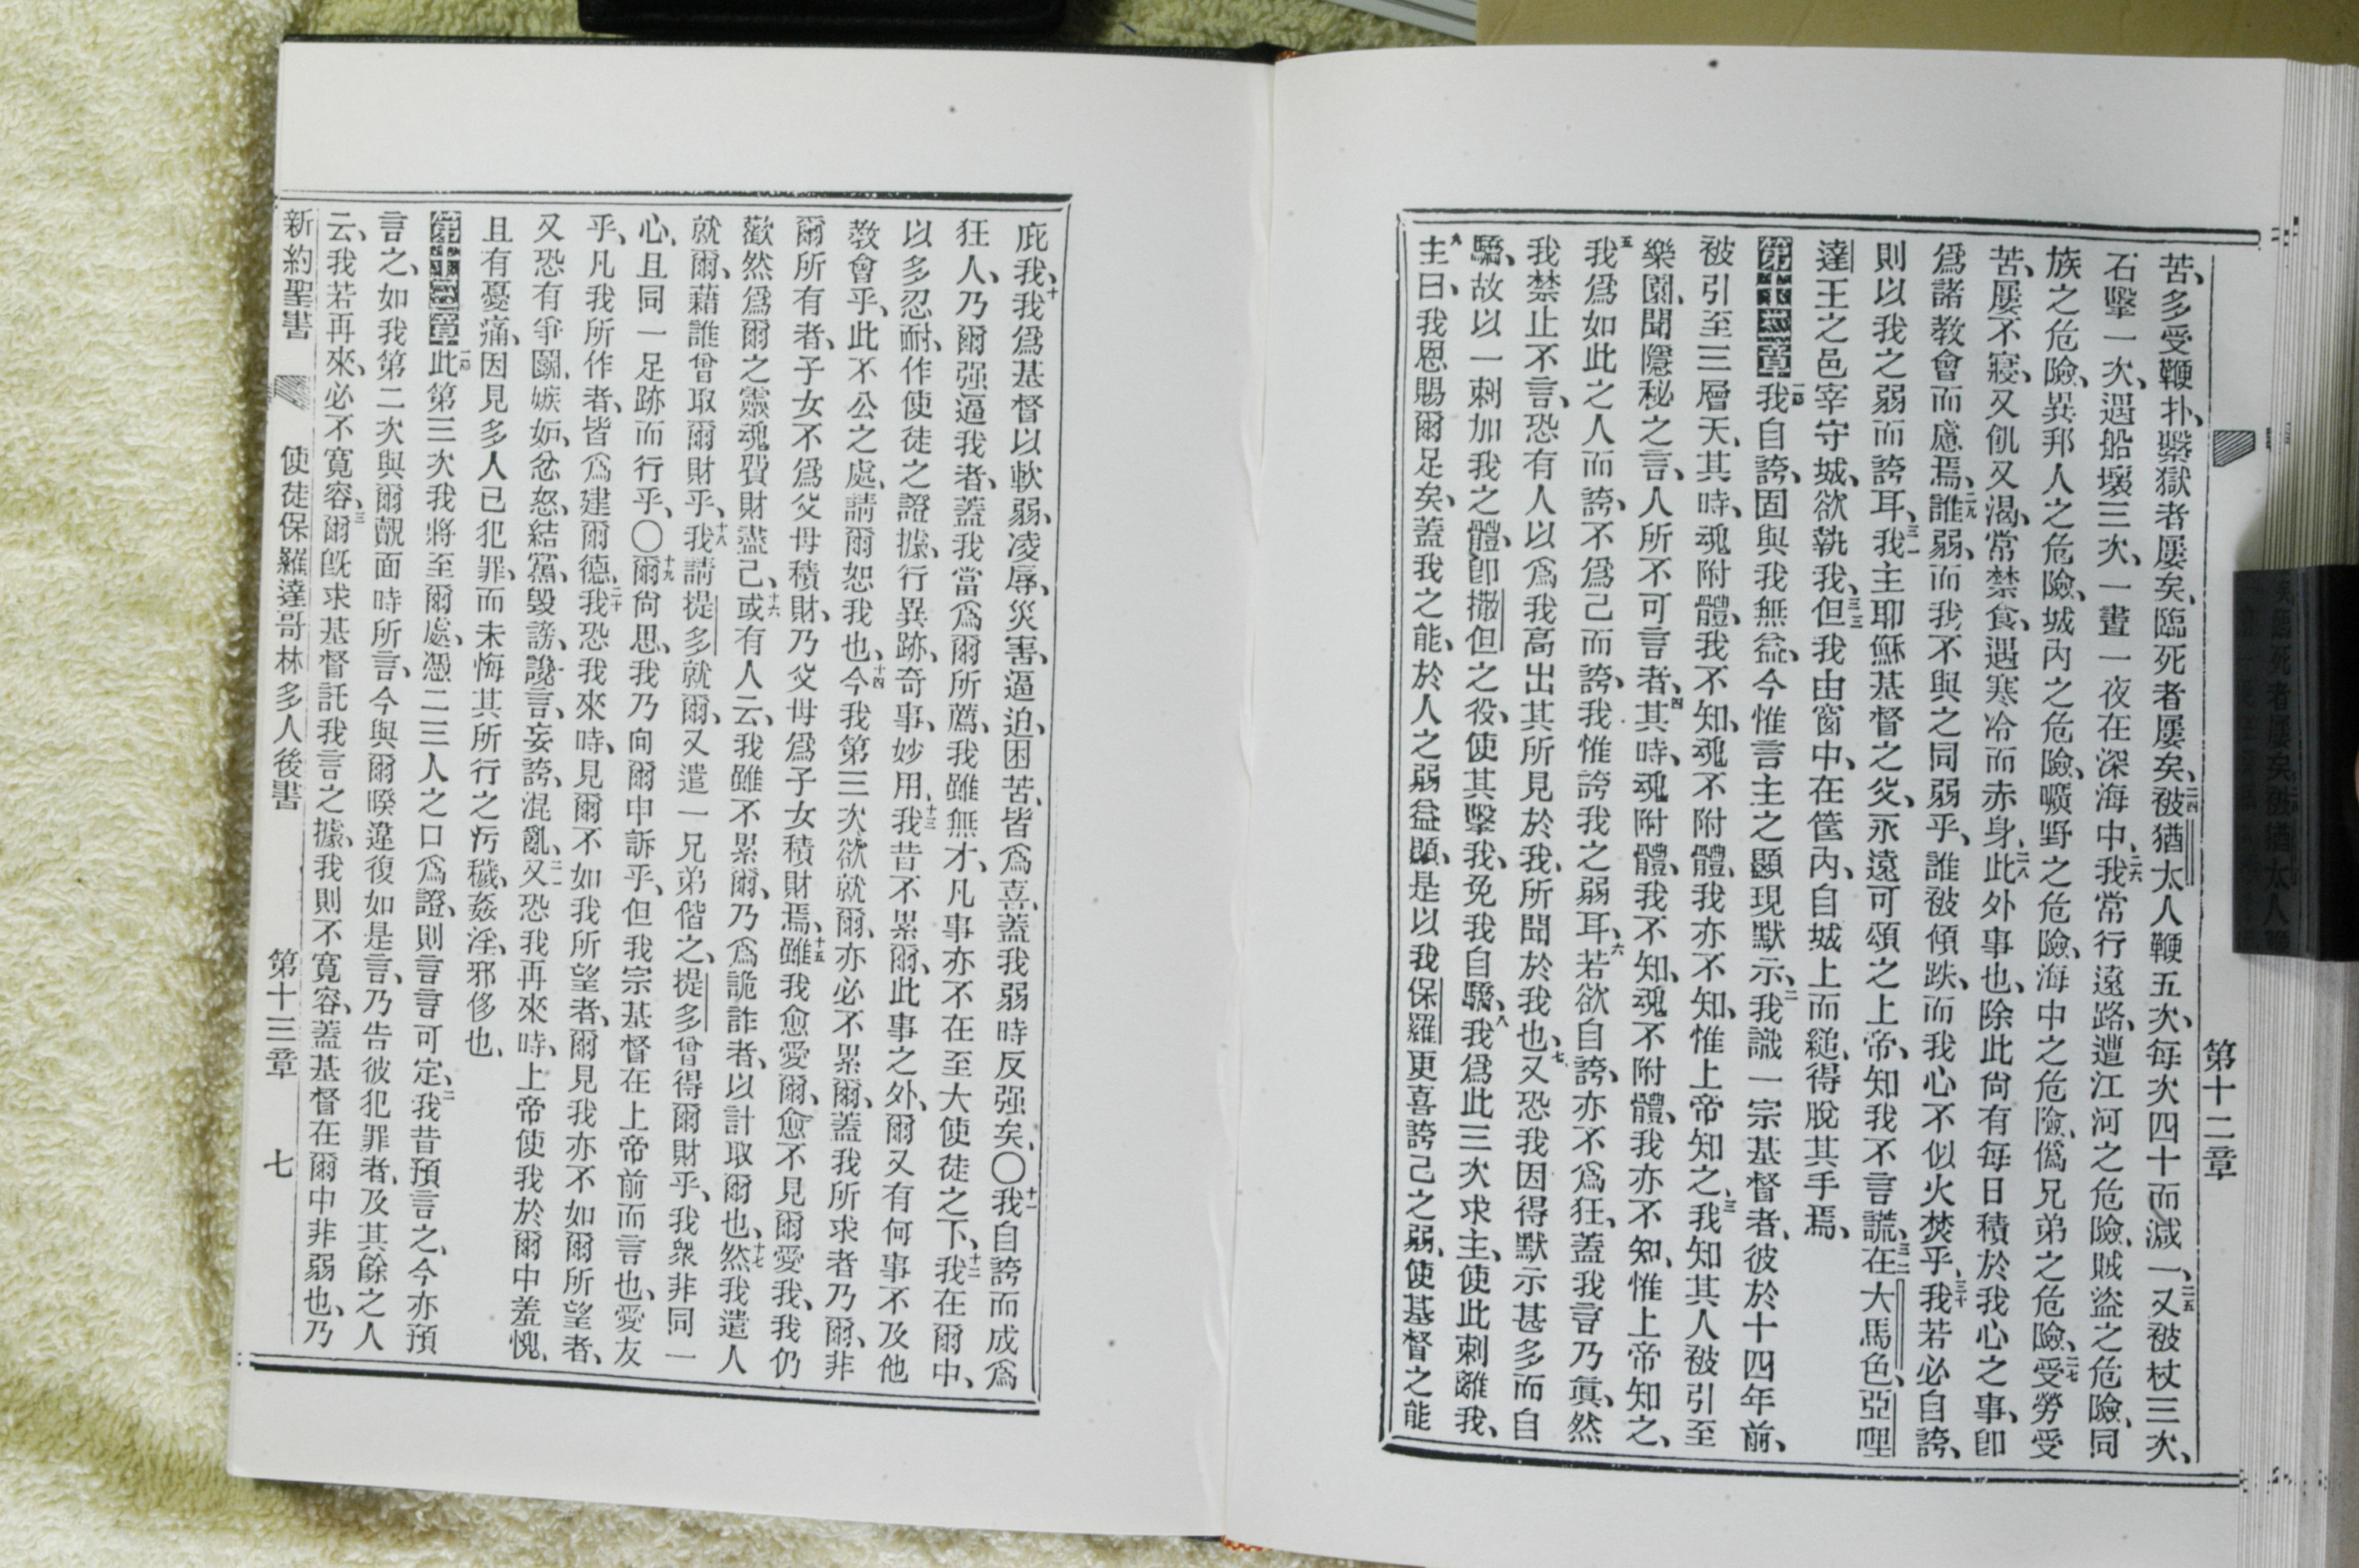 第十二章
苦、多受鞭扑、繫獄者屢矣、臨死者屢矣、二四被猶太人鞭五次、每次四十而減一、二五又被杖三次、
石擊一次、遇船壞三次、一晝一夜在深海中、二六我常行遠路、遭江河之危險、賊盜之危險、同
族之危險、異邦人之危險、城內之危險、曠野之危險、海中之危險、僞兄弟之危險、二七受勞受
苦、屢不寢、又飢又渴、常禁食、遇寒冷而赤身、二八此外事也、除此尙有每日積於我心之事、卽
爲諸教會而慮焉、二九誰弱、而我不與之同弱乎、誰被傾跌、而我心不似火焚乎、三十我若必自誇、
則以我之弱而誇耳、三一我主耶穌基督之父、永遠可頌之上帝、知我不言謊、三二在大馬色、亞哩
達王之邑宰守城、欲執我、三三但我由窗中、在筐內、自城上而縋、得脫其手焉、
第十二章一節我自誇、固與我無益、今惟言主之顯現默示、二我識一宗基督者、彼於十四年前、
被引至三層天、其時、魂附體、我不知、魂不附體、我亦不知、惟上帝知之、三我知其人被引至
樂園、聞隱秘之言、人所不可言者、四其時、魂附體、我不知、魂不附體、我亦不知、惟上帝知之、
五我爲如此之人而誇、不爲己而誇、我惟誇我之弱耳、六若欲自誇、亦不爲狂、蓋我言乃眞、然
我禁止不言、恐有人以爲我高出其所見於我、所聞於我也、七又恐我因得默示甚多而自
驕、故以一刺加我之體、卽撒但之役、使其擊我、免我自驕、八我爲此三次求主、使此刺離我、
九主曰、我恩賜爾足矣、蓋我之能、於人之弱益顯、是以我保羅更喜誇己之弱、使基督之能
庇我、十我爲基督以軟弱、凌辱、災害、逼迫、困苦、皆爲喜、蓋我弱時反强矣、〇十一我自誇而成爲
狂人、乃爾强逼我者、蓋我當爲爾所薦、我雖無才、凡事亦不在至大使徒之下、十二我在爾中、
以多忍耐、作使徒之證據、行異跡、奇事、妙用、十三我昔不累爾、此事之外、爾又有何事不及他
教會乎、此不公之處、請爾恕我也、十四今我第三次欲就爾、亦必不累爾、蓋我所求者乃爾、非
爾所有者、子女不爲父母積財、乃父母爲子女積財焉、十五雖我愈愛爾、愈不見爾愛我、我仍
歡然爲爾之靈魂費財盡己、十六或有人云、我雖不累爾、乃爲詭詐者、以計取爾也、十七然我遣人
就爾、藉誰曾取爾財乎、十八我請提多就爾、又遣一兄弟偕之、提多曾得爾財乎、我衆非同一
心、且同一足跡而行乎、〇十九爾尙思、我乃向爾申訴乎、但我宗基督在上帝前而言也、愛友
乎、凡我所作者、皆爲建爾德、二十我恐我來時、見爾不如我所望者、爾見我亦不如爾所望者、
又恐有爭鬭、嫉妒、忿怒、結黨、毀謗、讒言、妄誇、混亂、二一又恐我再來時、上帝使我於爾中羞愧、
且有憂痛、因見多人已犯罪、而未悔其所行之污穢、姦淫、邪侈也、
第十三章一節此第三次我將至爾處、憑二三人之口爲證、則言言可定、二我昔預言之、今亦預
言之、如我第二次與爾覿面時所言、今與爾暌違復如是言、乃告彼犯罪者、及其餘之人
云、我若再來、必不寬容、三爾旣求基督託我言之據、我則不寬容、蓋基督在爾中非弱也、乃
新約聖書 使徒保羅達哥林多人後書 第十三章 七